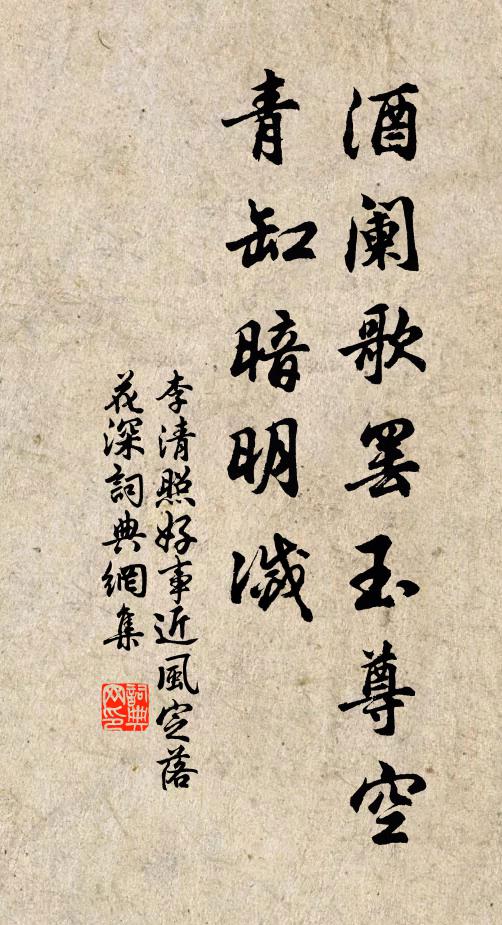 酒阑歌罢玉尊空
青缸暗明灭
李清照好事近風定落
花深詞典網集
詞典网印